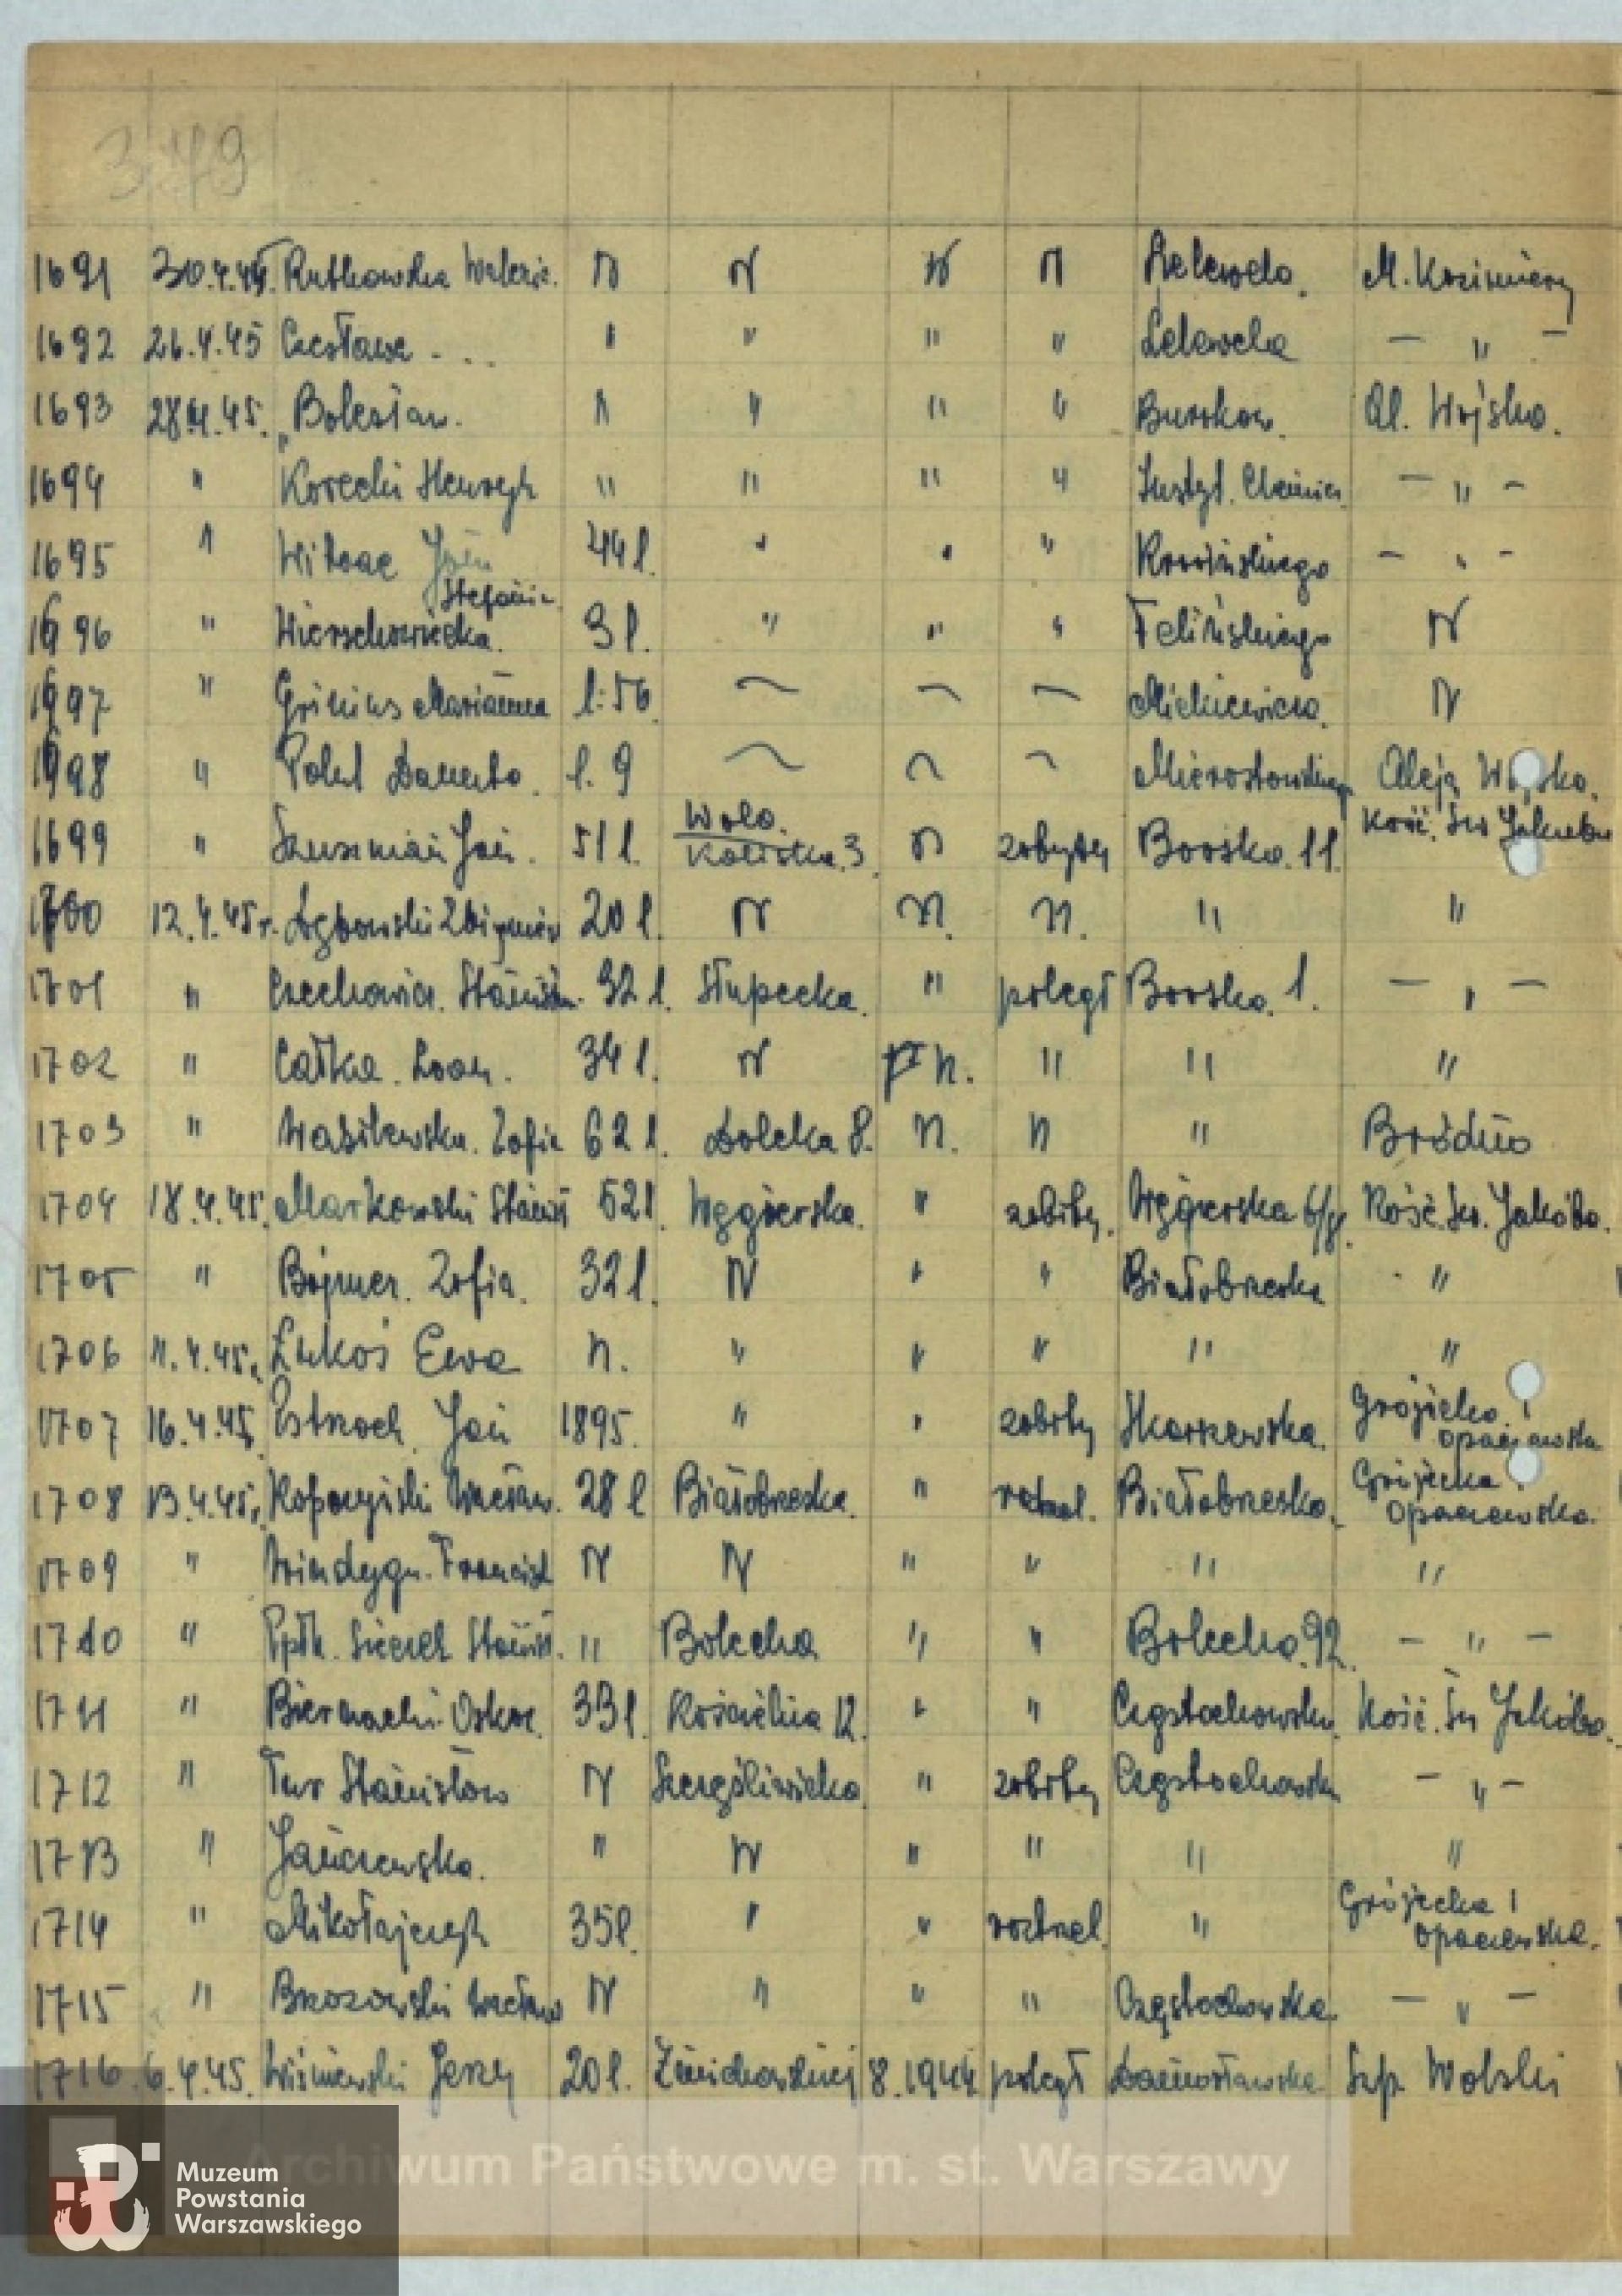 379
1691 30.4.45. Rutkowska Waleria. N N N N Lelewela. M. Kazimiery
1692 26.4.45 Czesława - . . " " " " Lelewela — " —
1693 28.4.45. " Bolesław. " " " " Burakow. Al. Wojska.
1694 " Korecki Henryk " " " " Instyt. Chemicz. — " —
1695 " Witrac Jan 44 l. " " " Krasińskiego — " —
Stefania
1696 " Wierzchowiecka. 3 l. " " " Felińskiego N
1697 " Marianna l. 56 ~ ~ ~ Mickiewicza. N
1698 " Danuta. l. 9 ~ ~ ~ Aleja Wojska.
1699 " Jan. 51 l. Wola. Kaliska 3. N zabyty Barska. 11. Kość. Św Jakuba
1700 12.4.45r. Zbigniew 20 l. N N. N. " "
1701 " Czechowicz. Stanisław. 32 l. Słupecka. " poległ Barska. 1. — " —
1702 " Całka. Leon. 34 l. N N. " " "
1703 " Wasilewska. Zofia 62 l. Dolcka 8. N. N " Bródno
1704 18.4.45. Markowski Stanisł 52 l. Węgierska. " zabity. Węgierska Kość. Św. Jakóba.
1705 " Bojmer. Zofia. 32 l. N " " Białobrzeska "
1706 11.4.45. Łukoś Ewa N. " " " " "
1707 16.4.45. Estkoch Jan 1895. " " zabity Skarżewska. Grójecka i Opaczewska
1708 13.4.45. Kopczyński Wacław. 28 l Białobrzeska. " rozstrzel. Białobrzeska. Grójecka i Opaczewska.
1709 " Windyga. Francisz N N " " " "
1710 " Ppłk. Stanisł. " Bolecha " " Bolecha. 92. — " —
1711 " Biernacki. Oskar. 33 l. Kościelna 12. " " Częstochowska. Kość. Św Jakóba.
1712 " Tur Stanisław N Szczęśliwicka. " zabity Częstochowska — " —
1713 " Janczewska. " N " " " "
1714 " Mikołajczyk 35 l. " " rozstrzel. " Grójecka i Opaczewska.
1715 " Brzozowski Wacław N " " " Częstochowska. — " —
1716. 6.4.45. Wiśniewski Jerzy 20 l. Żmichowskiej 8.1944 poległ Szp. Wolski
Archiwum Państwowe m. st. Warszawy
Muzeum
Powstania
Warszawskiego